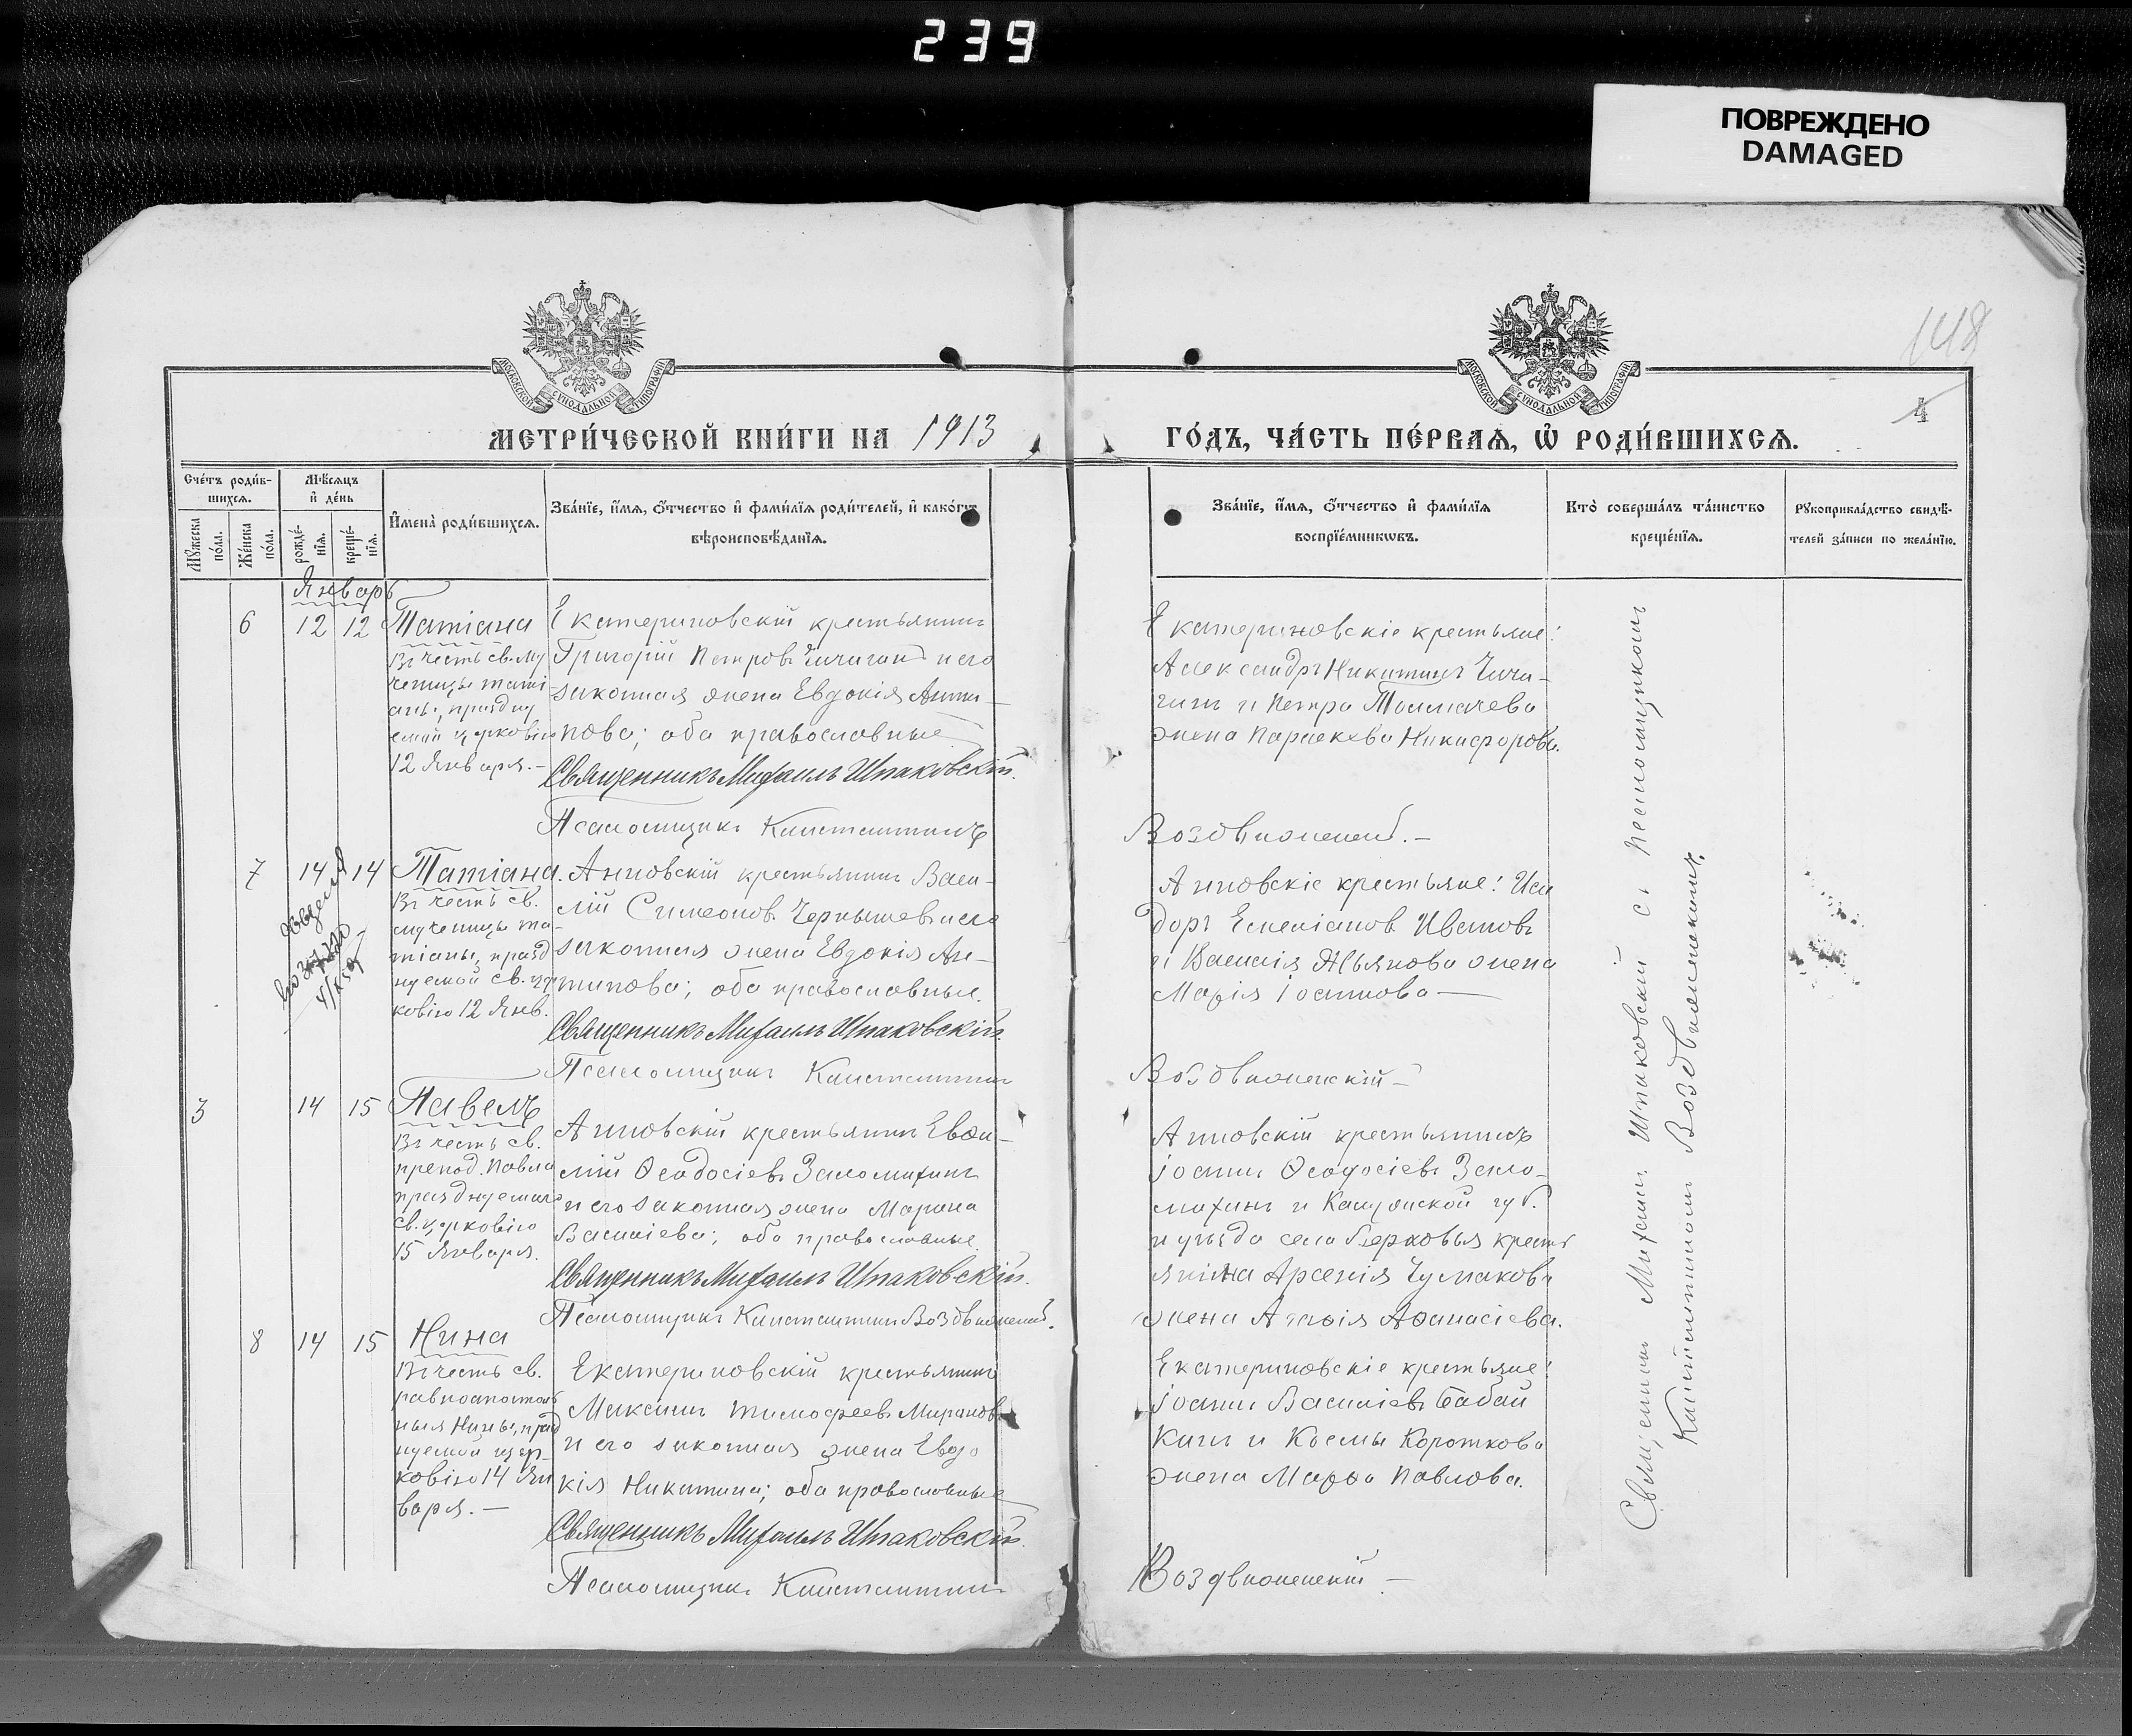 239
ПОВРЕЖДЕНО
DAMAGED
148
4
МОСКОВСКОЙ СѴНОДАЛЬНОЙ ТИПОГРАФІИ
МОСКОВСКОЙ СѴНОДАЛЬНОЙ ТИПОГРАФІИ
МЕТРИ́ЧЕСКОЙ КНИ́ГИ НА 1913
ГО́ДЪ, ЧА́СТЬ ПЕ́РВАѦ, Ѡ҆ РОДИ́ВШИХСѦ.
Сче́тъ роди́в-
шихсѧ.
Мꙋ́жеска
по́ла.
Же́нска
по́ла.
Мѣ́сѧцъ
и҆ де́нь
рожде́-
нїѧ.
креще́-
нїѧ.
И҆мена̀ роди́вшихсѧ.
Зва́нїе, и҆́мѧ, ѻ҆́тчество и҆ фами́лїѧ роди́телей, и҆ како́гѡ
вѣроисповѣ́данїѧ.
Зва́нїе, и҆́мѧ, ѻ҆́тчество и҆ фами́лїѧ
воспрїе́мникѡвъ.
Кто̀ соверша́лъ та́инство
креще́нїѧ.
Рꙋкоприкла́дство свидѣ́-
телей за́писи по жела́нїю.
Январь
6 12 12 Татіана
Въ честь св. му
ченицы Тати
аны, праздну
емой церковію
12 Января.-
Екатериновскій крестьянинъ
Григорій Петровъ Чичигинъ и его
законная жена Евдокія Анти-
пова; оба православные
Священникъ Михаилъ Шпаковскій.
Псаломщикъ Константинъ
Екатериновскіе крестьяне:
Александръ Никитинъ Чичи-
гинъ и Петра Толмачева
жена Параскева Никифорова.
Воздвиженскій.-
7 14 14 Татіана.
Въ честь св.
мученицы Та-
тіаны, празд
нуемой св. цер
ковію 12 Янв.
Анновскій крестьянинъ Васи-
лій Симеоновъ Чернышевъ и его
законная жена Евдокія Ан-
типова; оба православные.
Священникъ Михаилъ Шпаковскій.
Псаломщикъ Константинъ
Анновскіе крестьяне: Иси
доръ Емеліановъ Ивановъ
и Василія Ильянова жена
Марія Іоаннова —
Воздвиженскій -
3 14 15 Павелъ
Въ честь св.
препод. Павла
празднуемаго
св. церковію
15 Января.
Анновскій крестьянинъ Евѳи-
мій Ѳеодосіевъ Заломихинъ
и его законная жена Марина
Василіева; оба православные.
Священникъ Михаилъ Шпаковскій.
Псаломщикъ Константинъ Воздвиженскій.
Анновскій крестьянинъ
Іоаннъ Ѳеодосіевъ Зало-
михинъ и Калужской губ.
и уѣзда села Берковья кресть
янина Арсенія Чумакова
жена Агафія Аѳанасіева.
8 14 15 Нина
Въ честь св.
равноапостоль
ныя Нины, празд
нуемой цер-
ковію 14 Ян
варя.-
Екатериновскій крестьянинъ
Максимъ Тимофеевъ Мирановъ
и его законная жена Евдо
кія Никитина; оба православные
Священникъ Михаилъ Шпаковскій.
Псаломщикъ Константинъ
Екатериновскіе крестьяне:
Іоаннъ Василіевъ Бабай
кинъ и Космы Короткова
жена Марѳа Павлова.
Воздвиженскій -
Священникъ Михаилъ Шпаковскій съ псаломщикомъ
Константиномъ Воздвиженскимъ.